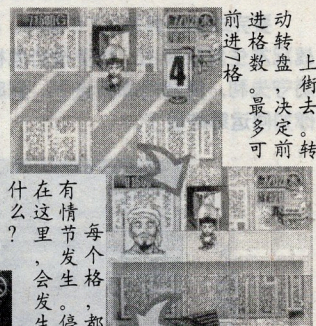 上街去。转
动转盘，决定前
进格数。最多可
前进7格
4
每个格，都
有情节发生。停
在这里，会发生
什么？